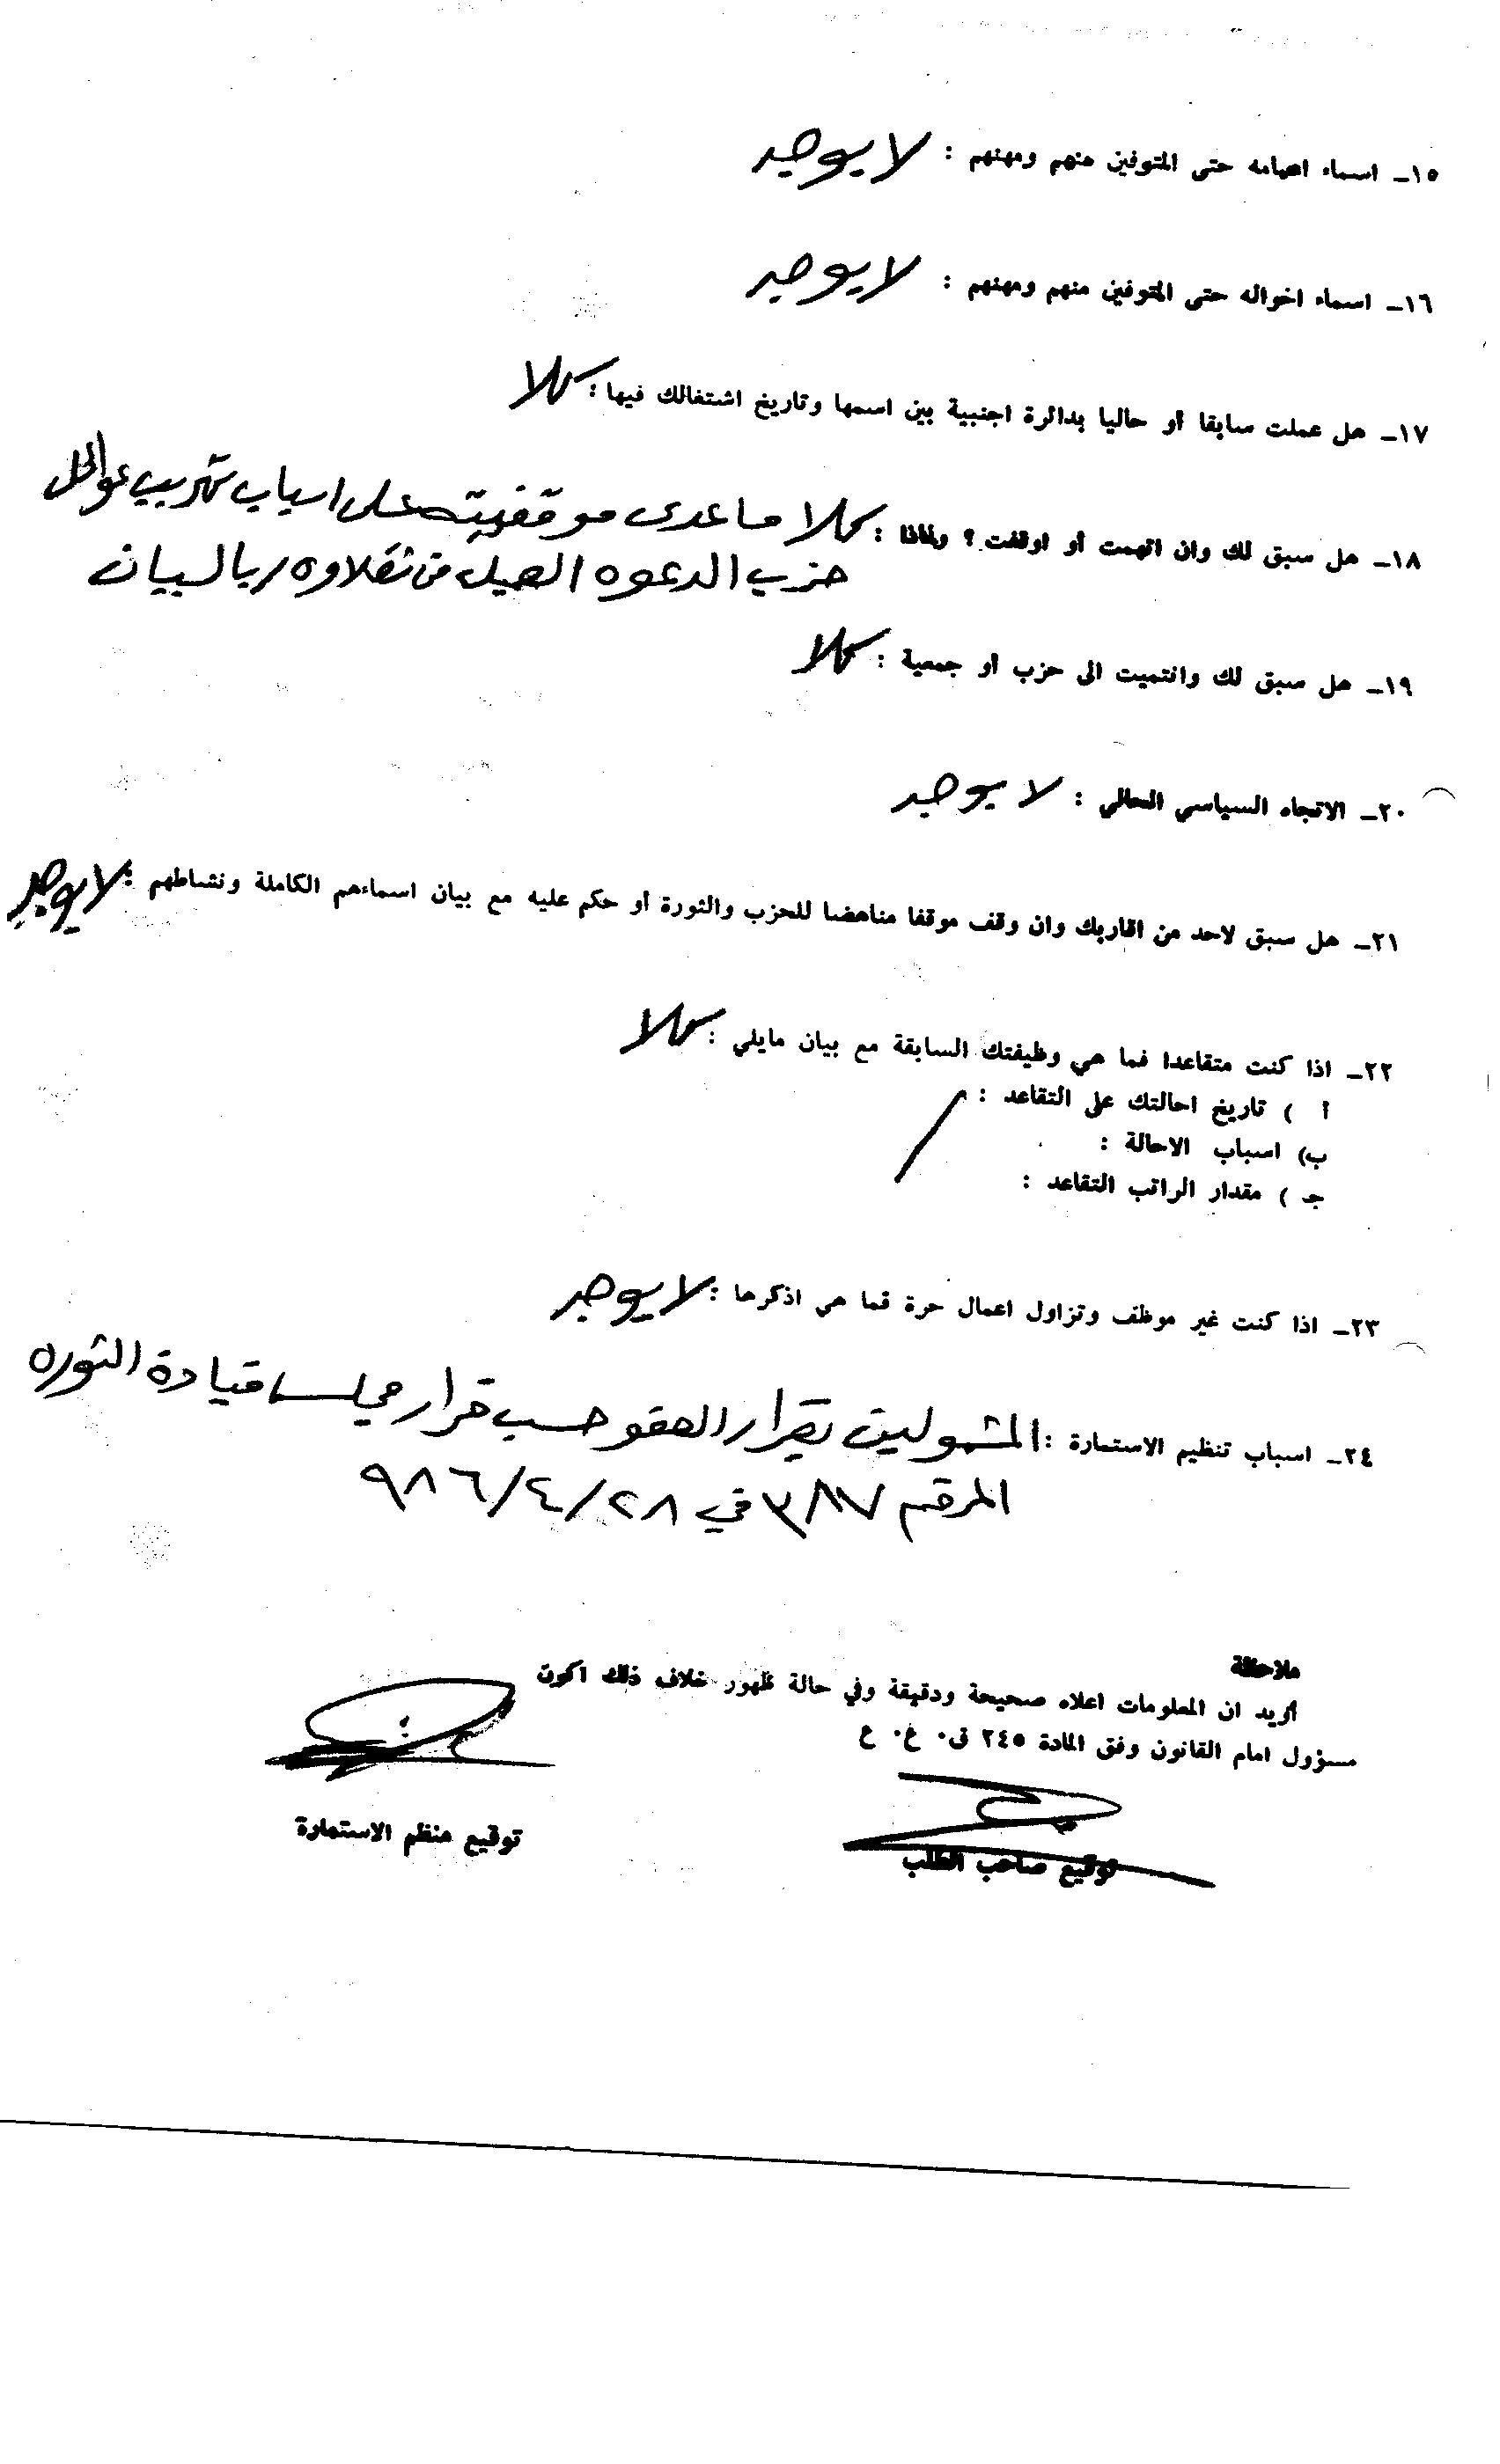 ١٥ـ اسماء اعمامه حتى المتوفين منهم ومهنهم : لا يوجد
١٦ـ اسماء اخواله حتى المتوفين منهم ومهنهم : لا يوجد
١٧ـ هل عملت سابقا أو حاليا بدائرة اجنبية بين اسمها وتاريخ اشتغالك فيها : كلا
١٨ـ هل سبق لك وان اتهمت أو اوقفت ؟ ولماذا : كلا ما عدى على اسباب تهريب عوائل
حزب الدعوه العميل من
١٩ـ هل سبق لك وانتميت الى حزب أو جمعية : كلا
٢٠ـ الاتجاه السياسي الحالي : لا يوجد
٢١ـ هل سبق لاحد من اقاربك وان وقف موقفا مناهضا للحزب والثورة أو حكم عليه مع بيان اسماءهم الكاملة ونشاطهم : لا يوجد
٢٢ـ اذا كنت متقاعدا فما هي وظيفتك السابقة مع بيان مايلي : كلا
أ ) تاريخ احالتك على التقاعد :
ب) اسباب الاحالة :
جـ ) مقدار الراتب التقاعد :
٢٣ـ اذا كنت غير موظف وتزاول اعمال حرة فما هي اذكرها : لا يوجد
٢٤ـ اسباب تنظيم الاستمارة : المشمولين بقرار العفو حسب قرار مجلس قيادة الثوره
المرقم ٣٨٧ في ٩٨٦/٤/٢٨
ملاحظة
أؤيد ان المعلومات اعلاه صحيحة ودقيقة وفي حالة ظهور خلاف ذلك اكون
مسؤول امام القانون وفق المادة ٢٤٥ ق٠ غ٠ ع
توقيع صاحب الطلب
توقيع منظم الاستمارة